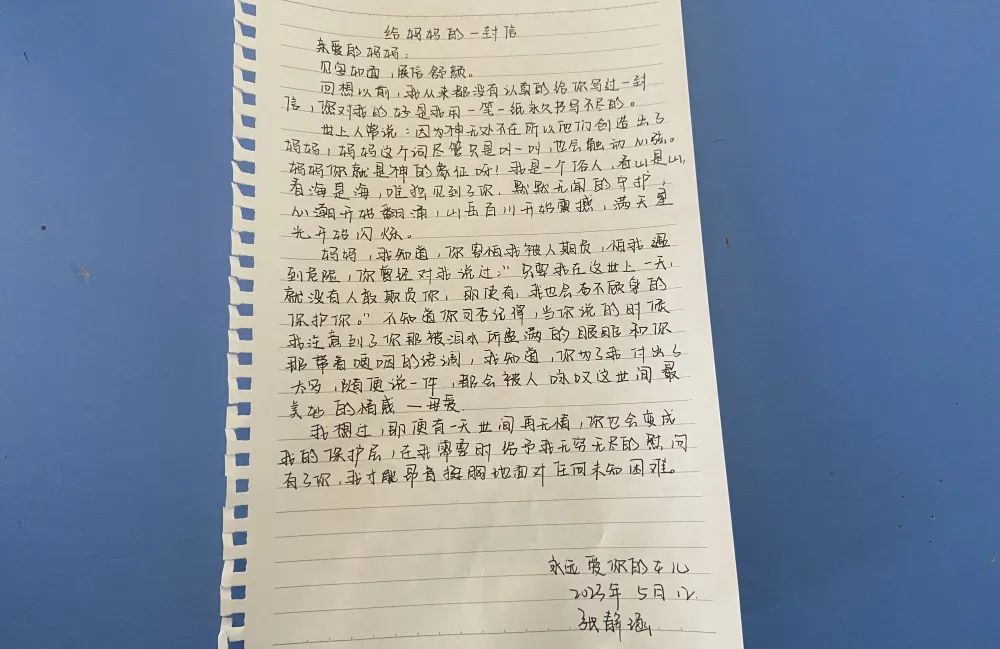 给妈妈的一封信
亲爱的妈妈：
见字如面，展信舒颜。
回想以前，我从来都没有认真的给你写过一封
信，你对我的好是我用一笔一纸永久书写不尽的。
世上人常说：因为神无处不在所以他们创造出了
妈妈，妈妈这个词尽管只是叫一叫，也会触动心弦。
妈妈你就是神的象征呀！我是一个俗人，看山是山，
看海是海，唯独见到了你，默默无闻的守护，
心潮开始翻涌，山岳百川开始震撼，满天星
光开始闪烁。
妈妈，我知道，你害怕我被人欺负，怕我遇
到危险，你曾经对我说过：“只要我在这世上一天，
就没有人敢欺负你，即便有，我也会奋不顾身的
保护你。”不知道你可否记得，当你说的时候
我注意到了你那被泪水所盛满的眼眶和你
那带着哽咽的语调，我知道，你为了我付出了
太多，随便说一件，都会被人咏叹这世间最
美好的情感—母爱.
我想过，即便有一天世间再无情，你也会变成
我的保护层，在我需要时给予我无穷无尽的慰问
有了你，我才能昂首挺胸地面对任何未知困难。
永远爱你的女儿
2023年5月12.
张静涵